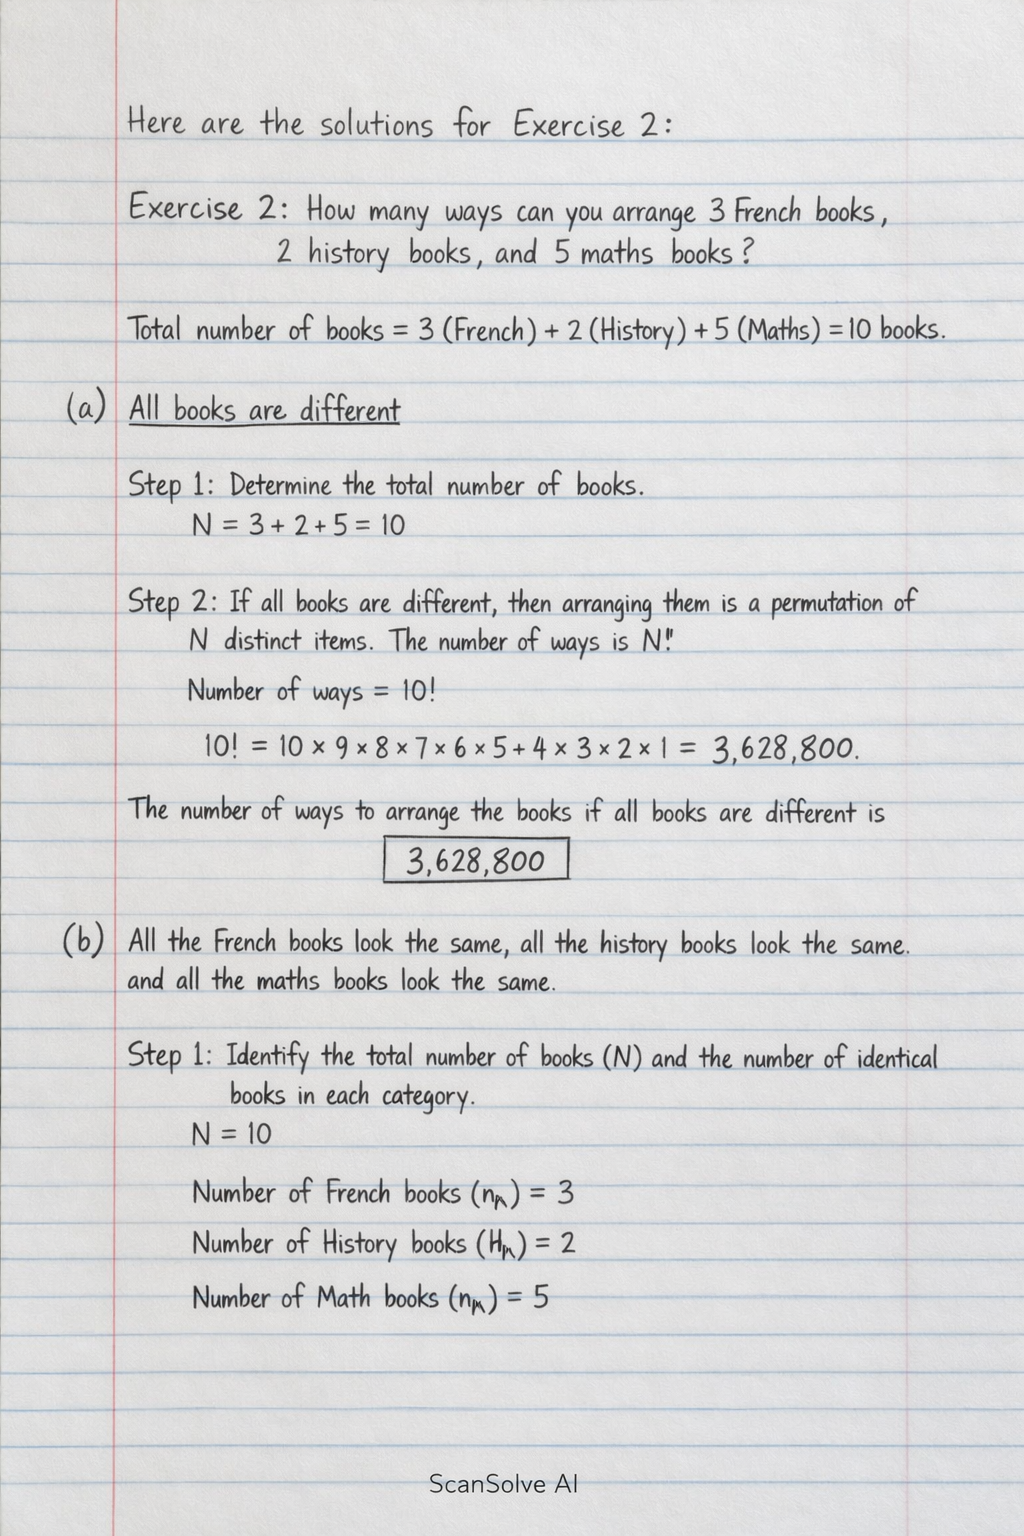 Here are the solutions for Exercise 2:
Exercise 2: How many ways can you arrange 3 French books,
2 history books, and 5 maths books?
Total number of books = 3 (French) + 2 (History) + 5 (Maths) = 10 books.
(a) All books are different
Step 1: Determine the total number of books.
N = 3 + 2 + 5 = 10
Step 2: If all books are different, then arranging them is a permutation of
N distinct items. The number of ways is N!"
Number of ways = 10!
10! = 10 × 9 × 8 × 7 × 6 × 5 + 4 × 3 × 2 × 1 = 3,628,800.
The number of ways to arrange the books if all books are different is
3,628,800
(b) All the French books look the same, all the history books look the same.
and all the maths books look the same.
Step 1: Identify the total number of books (N) and the number of identical
books in each category.
N = 10
Number of French books (n) = 3
Number of History books (H) = 2
Number of Math books (n) = 5
ScanSolve AI